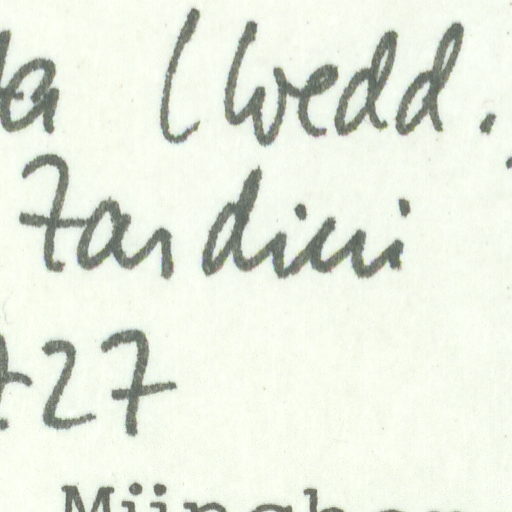 ta (Wedd.
Zardini
727
München